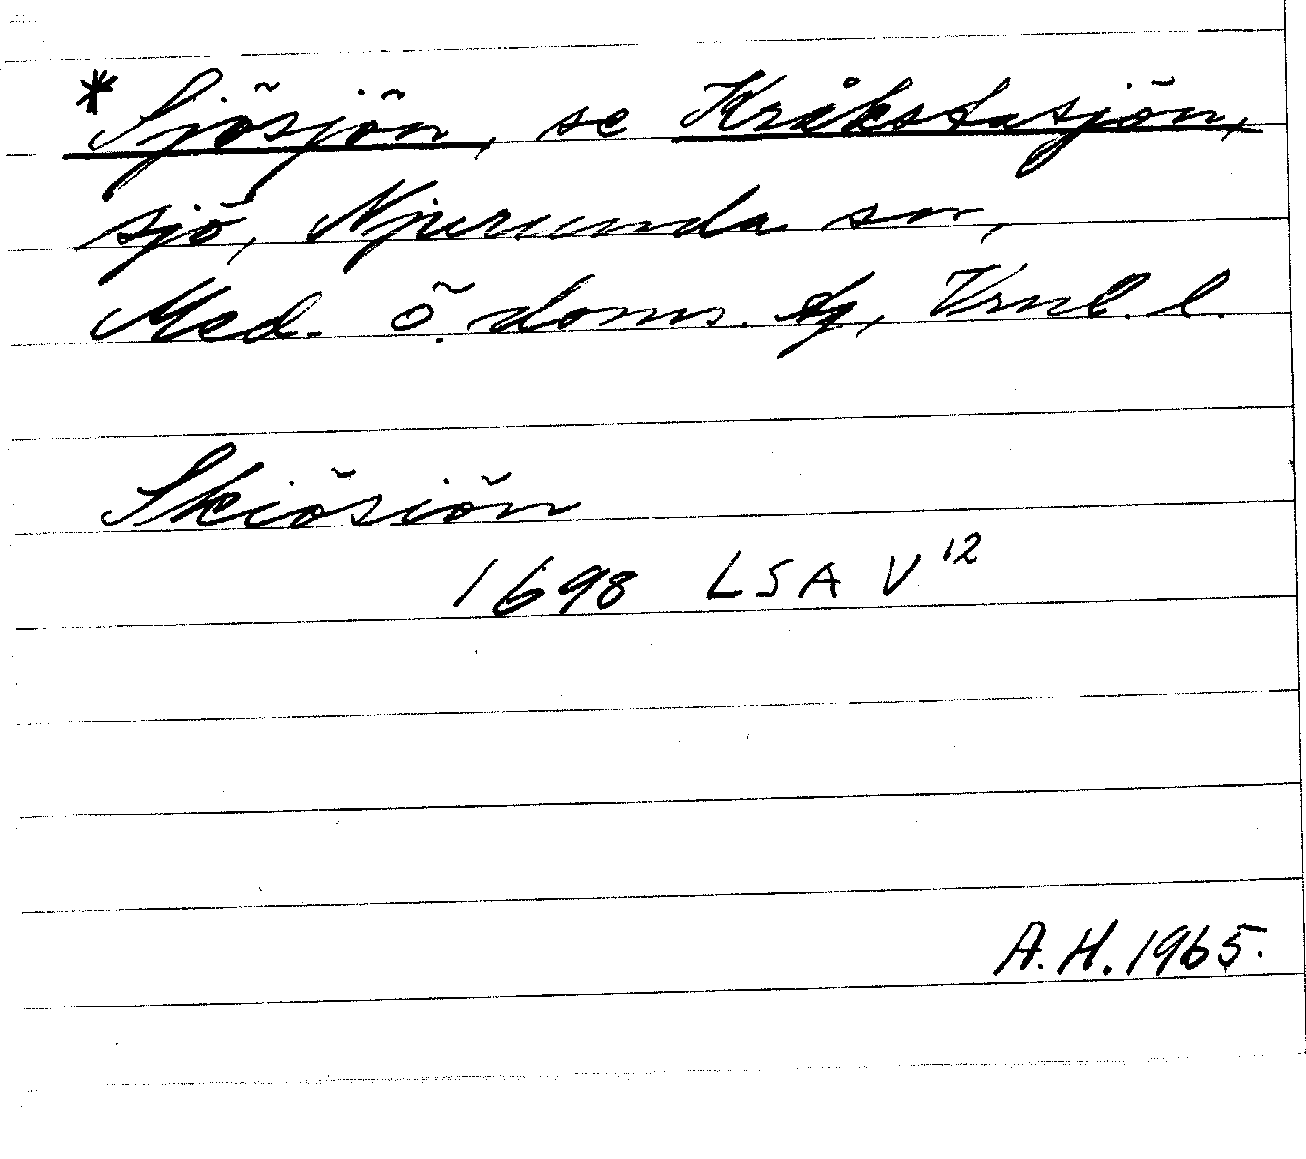 *Sjösjön, se Kråkstasjön,
sjö, Njurunda sn,
Med. ö. doms. tg, Vrnl. l.
Skiösiön
1698 LSA V¹²
A.H. 1965.